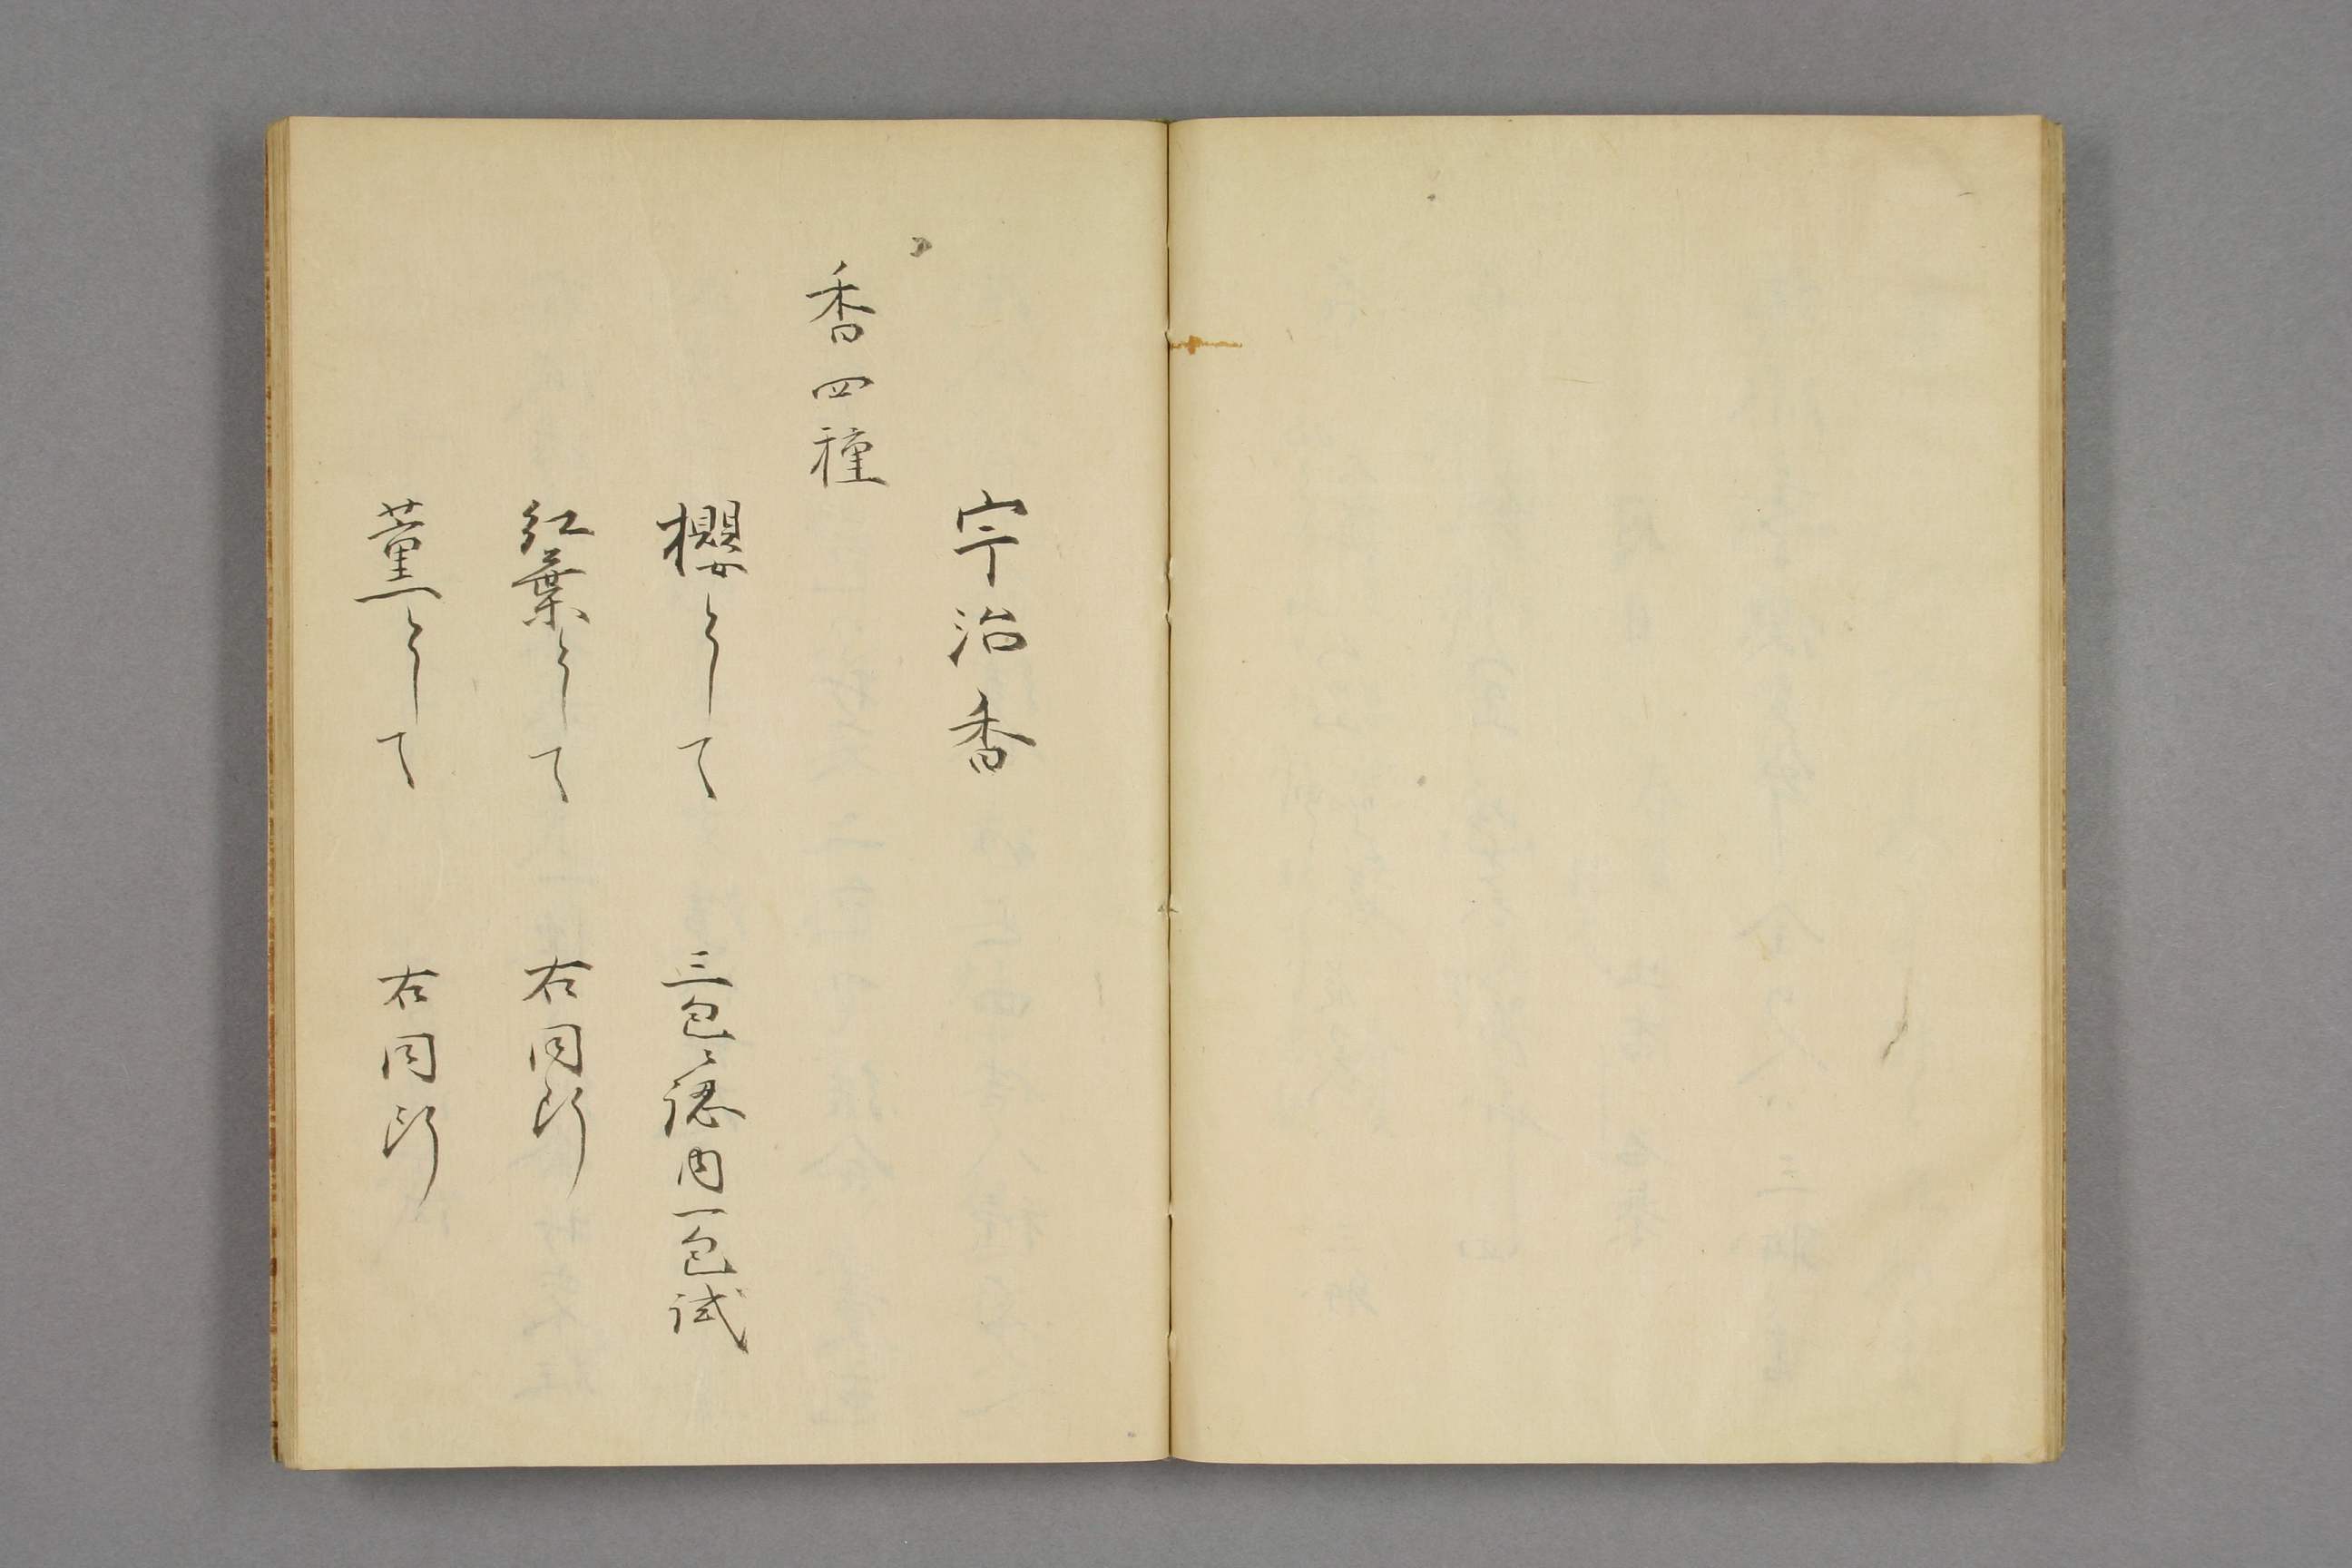 宇治香
香四種
櫻として 三包ニ認内一包試
紅葉として 右同断
薫として 右同断